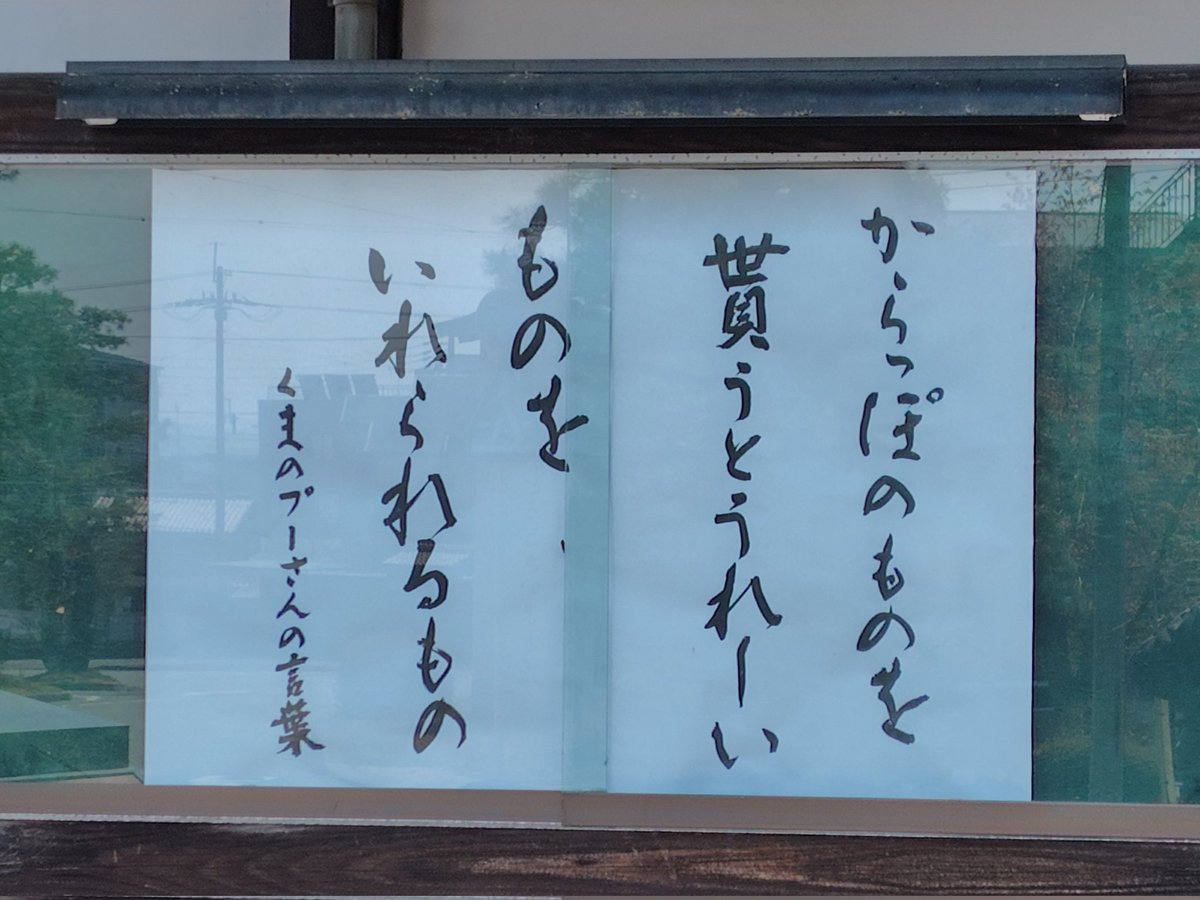 からっぽのものを
貰うとうれーい
ものを、
いれられるもの
くまのプーさんの言葉